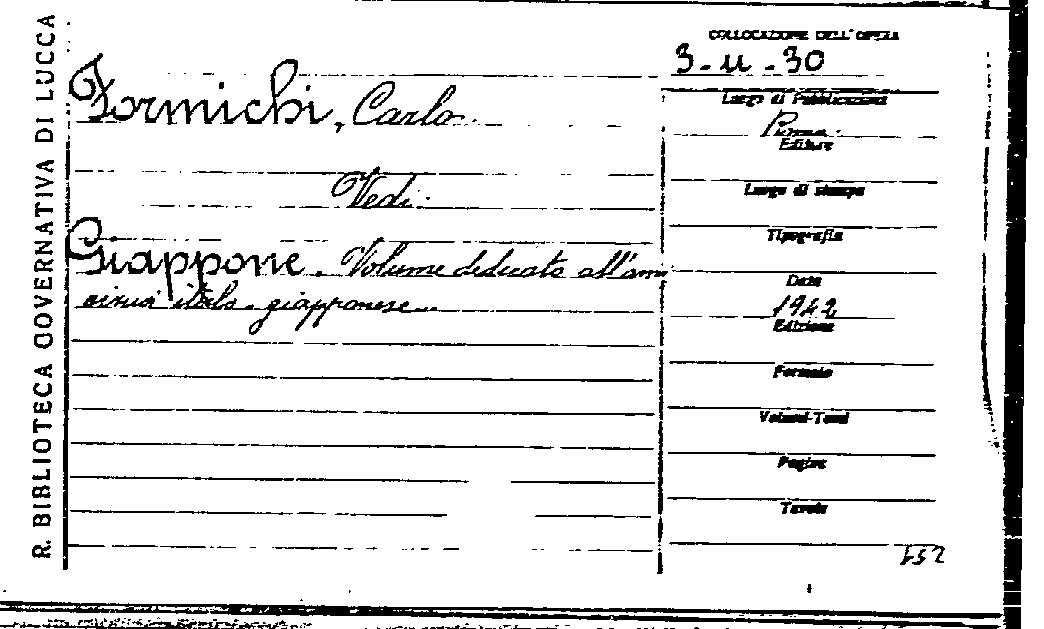 R. BIBLIOTECA GOVERNATIVA DI LUCCA
COLLOCAZIONE DELL'OPERA
3-u-30
Formichi, Carlo.
Luogo di Pubblicazione
Roma.
Editore
Vedi.
Luogo di stampa
Tipografia
Giappone. Volume dedicato all'ami
cizia italo-giapponese.
Data
1942
Edizione
Formato
Volumi-Tomi
Pagine
Tavole